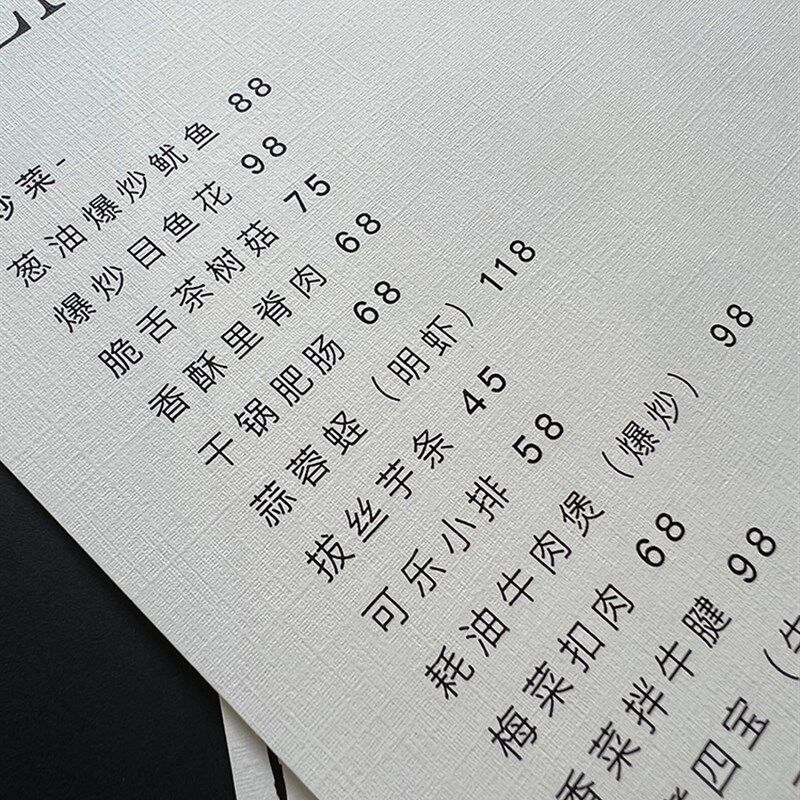 炒菜-
葱油爆炒鱿鱼 88
爆炒目鱼花 98
脆舌茶树菇 75
香酥里脊肉 68
干锅肥肠 68
蒜蓉蛏（明虾）118
拔丝芋条 45
可乐小排 58
耗油牛肉煲（爆炒） 98
梅菜扣肉 68
香菜拌牛腱 98
四宝（